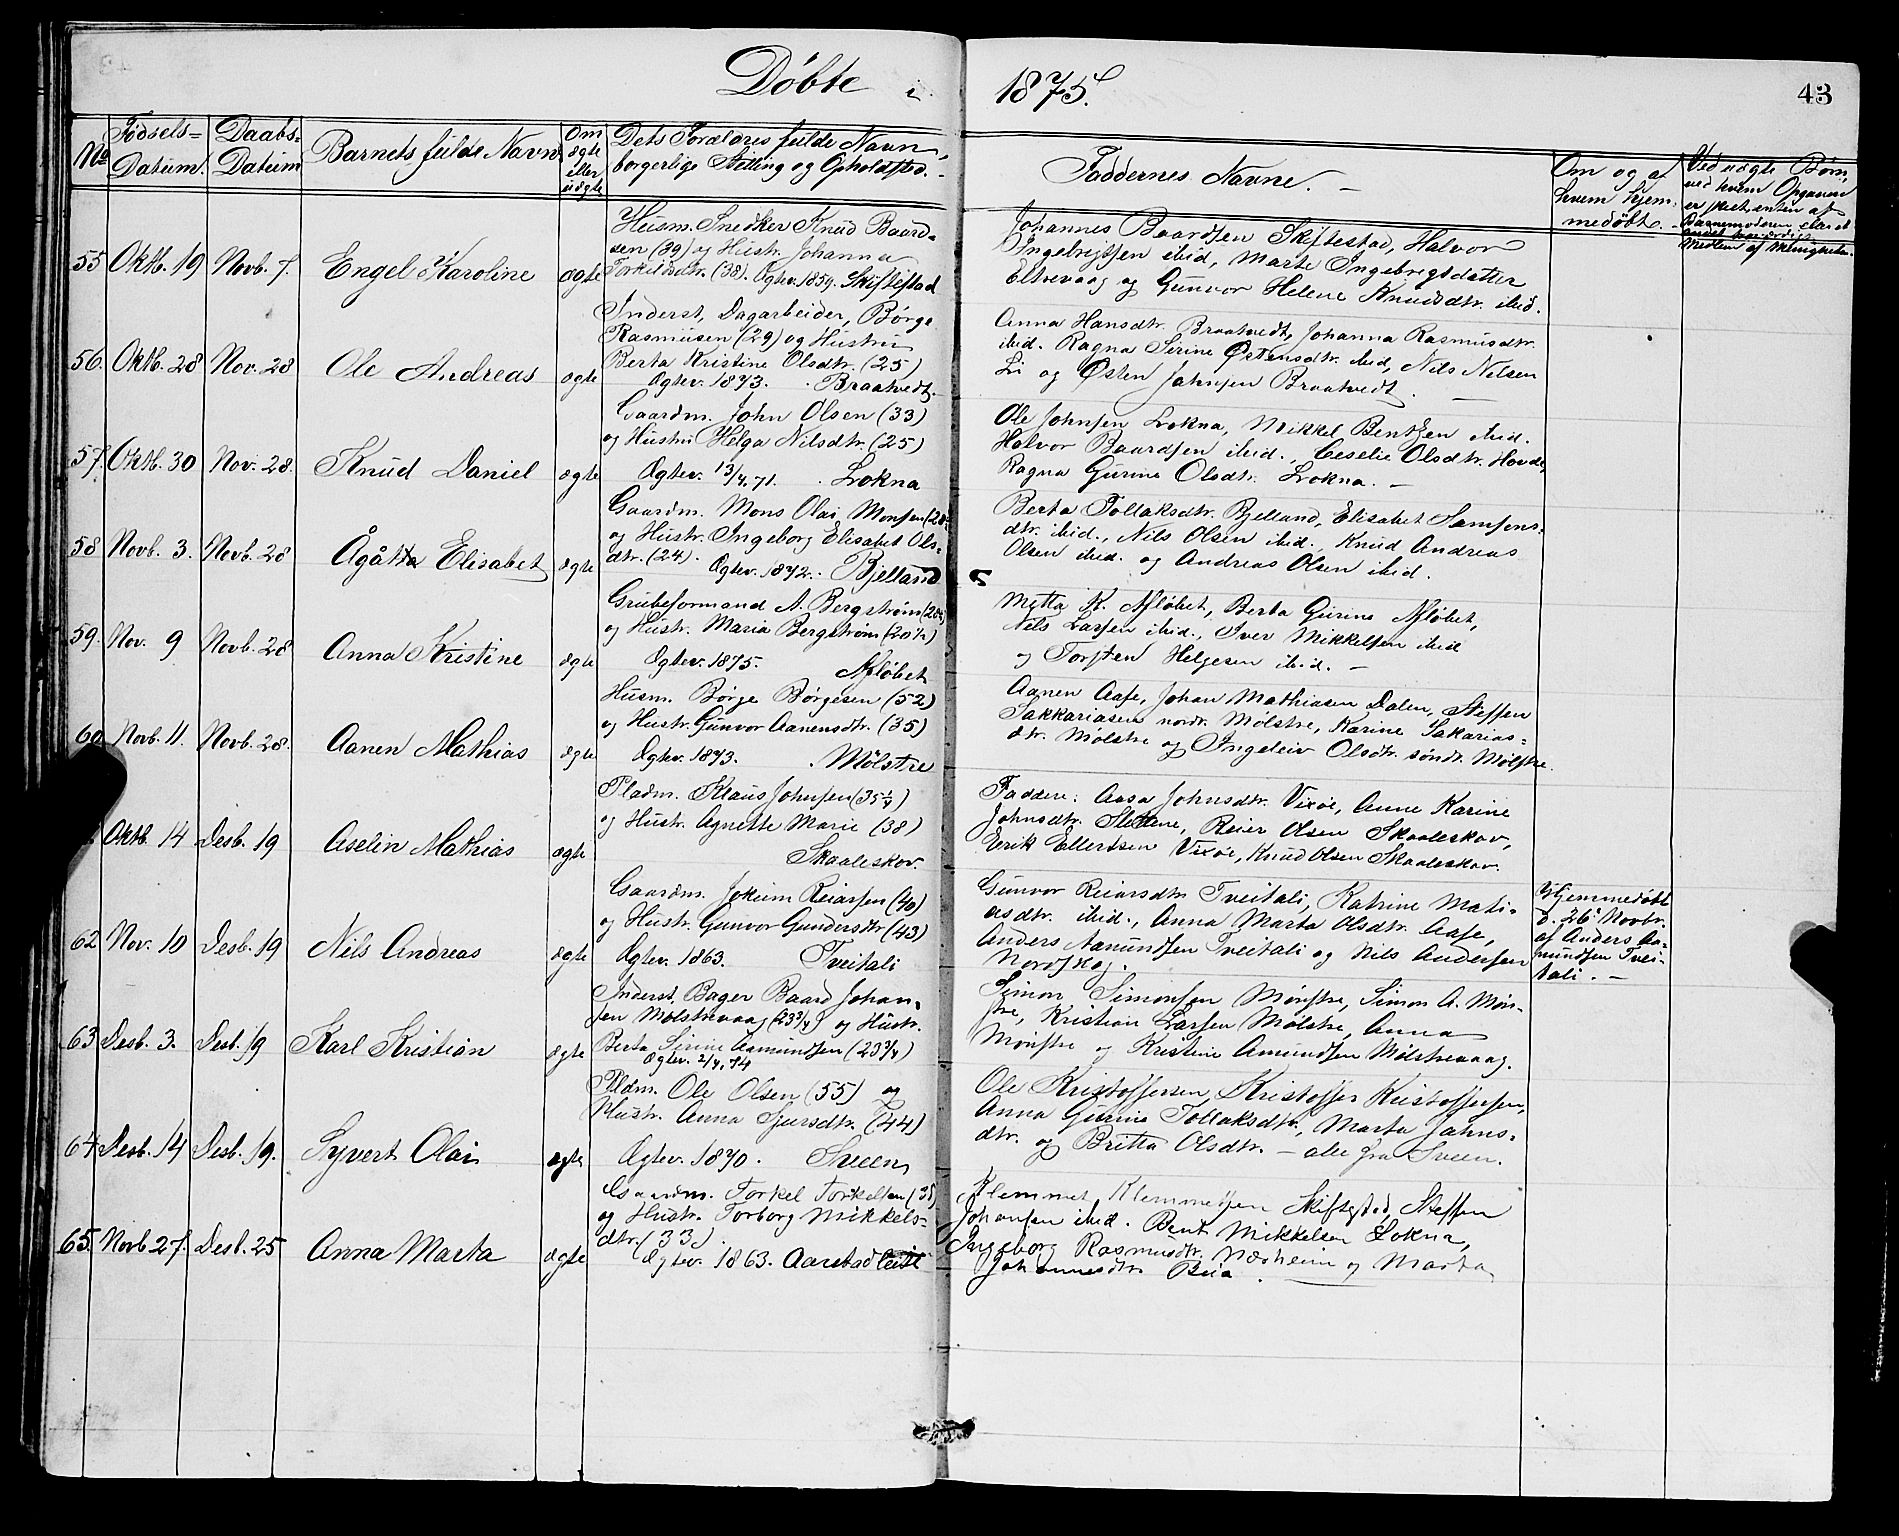 Døbte i 1875. 43
No Fødsels=Datum. Daabs=Datum Barnets fulde Navn Om ægte eller uægte Dets Forældres fulde Navn, borgerlige Stilling og Opholdssted. Faddernes Navne. Om og af hvem hjemmedøbt. Ved uægte Børn, ved hvem Opgaven er skeet, enten af Barnemoderen eller et andet troværdigt Medlem af Menigheden.
55 Oktb. 19 Novb. 7. Engel Karoline ægte
Husm. Snedker Knud Baard=
sen (39) og Hustr. Johanna
Torkildsdtr. (38). Ægtev. 1859. Skiftestad
Johannes Baardsen Skiftestad, Halvor
Ingebrigtsen ibid, Marte Ingebrigtsdatter
Eltrevaag og Gunvor Helene Knudsdtr. ibid.
56. Oktb. 28 Nov. 28 Ole Andreas ægte
Inderst, Dagarbeider, Børge
Rasmussen (29) og Hustru
Berta Kristine Olsdtr. (25)
Ægtev. 1873. Braatvedt.
Anna Hansdtr. Braatvedt, Johanna Rasmusdtr.
ibid. Ragna Serine Østensdtr. ibid, Nils Nilsen
Li og Østen Johnsen Braatvedt.
57. Oktb. 30 Nov. 28. Knud Daniel ægte
Gaardm. John Olsen (33)
og Hustru Helga Nilsdtr. (25)
Ægtev. 13/4.71. Lokna
Ole Johnsen Lokna, Mikkel Bentsen ibid.
Halvor Baardsen ibid., Ceselie Olsdtr. Hovde,
Ragna Gurine Olsdtr. Lokna.
58 Novb. 3. Novb. 28 Ågåtta Elisabet ægte
Gaardm. Mons Olai Monsen (28
og Hustr. Ingeborg Elisabet Ols=
dtr. (24). Ægtev. 1872. Bjelland
Berta Tollaksdtr. Bjelland, Elisabet Samsons=
dtr. ibid., Nils Olsen ibid., Knud Andreas
Olsen ibid. og Andreas Olsen ibid.
59. Nov. 9 Novb. 28 Anna Kristine ægte
Grubeformand A. Bergstrøm
og Hustr. Maria Bergstrøm (20½)
Ægtev. 1875. Afløbet
Metta K. Afløbet, Berta Gurine Afløbet,
Nils Larsen ibid., Iver Mikkelsen ibid
og Torsten Helgesen ibid.
60 Novb. 11. Novb. 28. Aanen Mathias ægte
Husm. Børge Børgesen (52)
og Hustr. Gunvor Aanensdtr. (35)
Ægtev. 1873. Mølstre
Aanen Aase, Johan Mathiasen Dalen, Steffen
Sakkariasen nordr. Mølstre, Karine Sakarias=
dtr. Mølstre og Ingeleiv Olsdtr. søndr. Mølstre.
Oktb. 14 Desb. 19 Aselin Mathias ægte
Pladm. Klaus Johnsen (35¼)
og Hustr. Agnette Marie (38)
Skaaleskov.
Faddere: Aasa Johnsdtr. Vixøe, Anne Karine
Johnsdtr. Slettene, Reier Olsen Skaaleskov,
Erik Ellertsen Vixøe, Knud Olsen Skaaleskov.
62 Nov. 10 Desb. 19 Nils Andreas ægte
Gaardm. Jokum Reiarsen (40)
og Hustr. Gunvor Gundersdtr (43)
Ægtev. 1863. Tveitali
Gunvor Reiarsdtr. Tveitali, Katrine Mati=
asdtr. ibid., Anna Marta Olsdtr. Aase,
Anders Aamundsen Tveitali og Nils Andersen
Nordskog.
Hjemmedøbt
d. 26. Novbr.
af Anders Aa=
mundsen Tvei=
tali.
63 Desb. 3. Desb. 19 Karl Kristian ægte
Inderst, Bager Baard Johan=
sen Mølstrevaag (23¾) og Hustr.
Berta Serine Aamundsen (23¾)
Ægtev. 2/4.74
Simon Simonsen Mønstre, Simon A. Møn=
stre, Kristian Larsen Mølstre, Anna
Mønstre og Kristine Amundsen Mølstrevaag.
64 Desb. 14 Desb. 19. Syvert Olai ægte
Pldm. Ole Olsen (55) og
Hustr. Anna Sjursdtr. (44)
Ægtev. 1870. Sveen
Ole Kristoffersen, Kristoffer Kristoffersen,
Anna Gurine Tollaksdtr, Marta Johns=
dtr. og Britta Olsdtr. – alle fra Sveen.
65. Novb 27. Desb. 25 Anna Marta ægte
Gaardm. Torkel Torkelsen (38)
og Hustr. Torborg Mikkels=
dtr. (33).
Ægtev. 1863. Aarstad
Klemmet Klemmetsen Skiftestad, Steffen
Johansen ibid. Bent Mikkelsen Lokna,
Ingeborg Rasmusdtr. Nærheim og Marta
Johannesdtr. Bua.